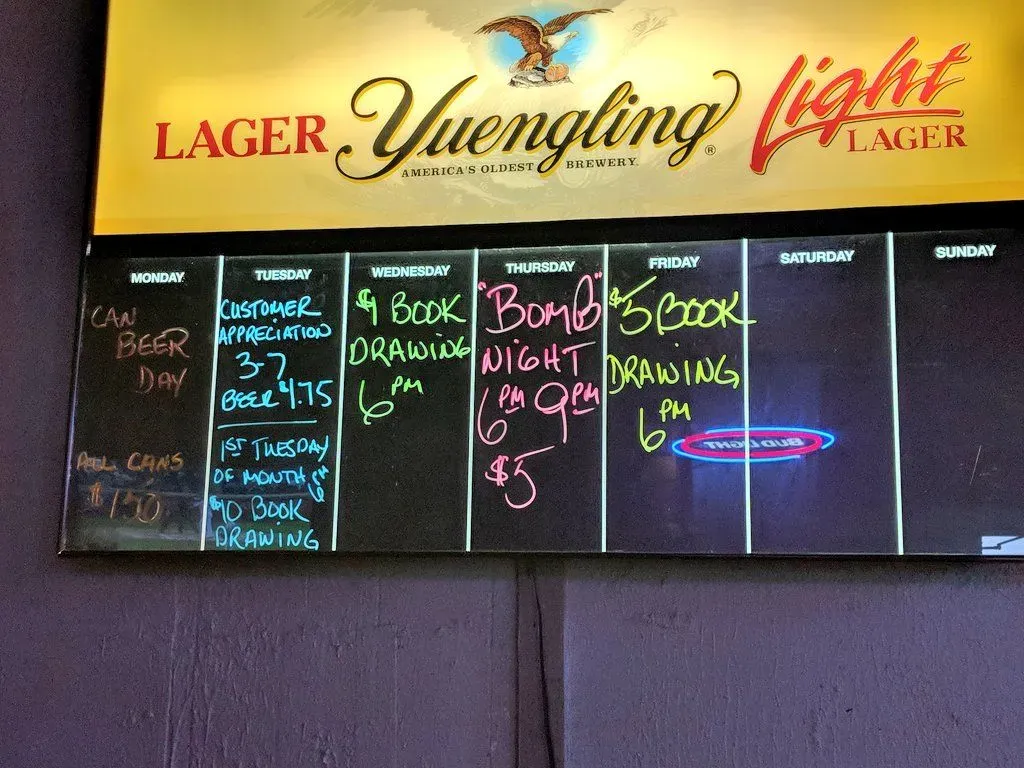 LAGER Yuengling® Light LAGER
AMERICA'S OLDEST BREWERY.
MONDAY
CAN
BEER
DAY
ALL CANS
$1.50
TUESDAY
CUSTOMER
APPRECIATION
3-7
BEER $1.75
1ST TUESDAY
OF MONTH
$10 BOOK
DRAWING
WEDNESDAY
BOOK
DRAWING
6PM
THURSDAY
"BOMB"
NIGHT
6PM 9PM
$5
FRIDAY
$5 BOOK
DRAWING
6PM
SATURDAY
BUD LIGHT
SUNDAY